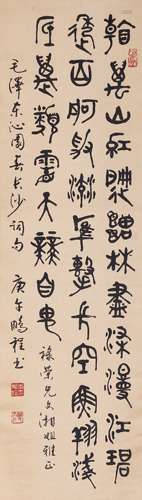 看萬山紅遍層林盡染漫江碧
透百舸爭流鷹擊長空魚翔淺
底萬類霜天競自由
祿榮兄文湘姐雅正
毛澤东沁園春長沙詞句 庚午鵬程书